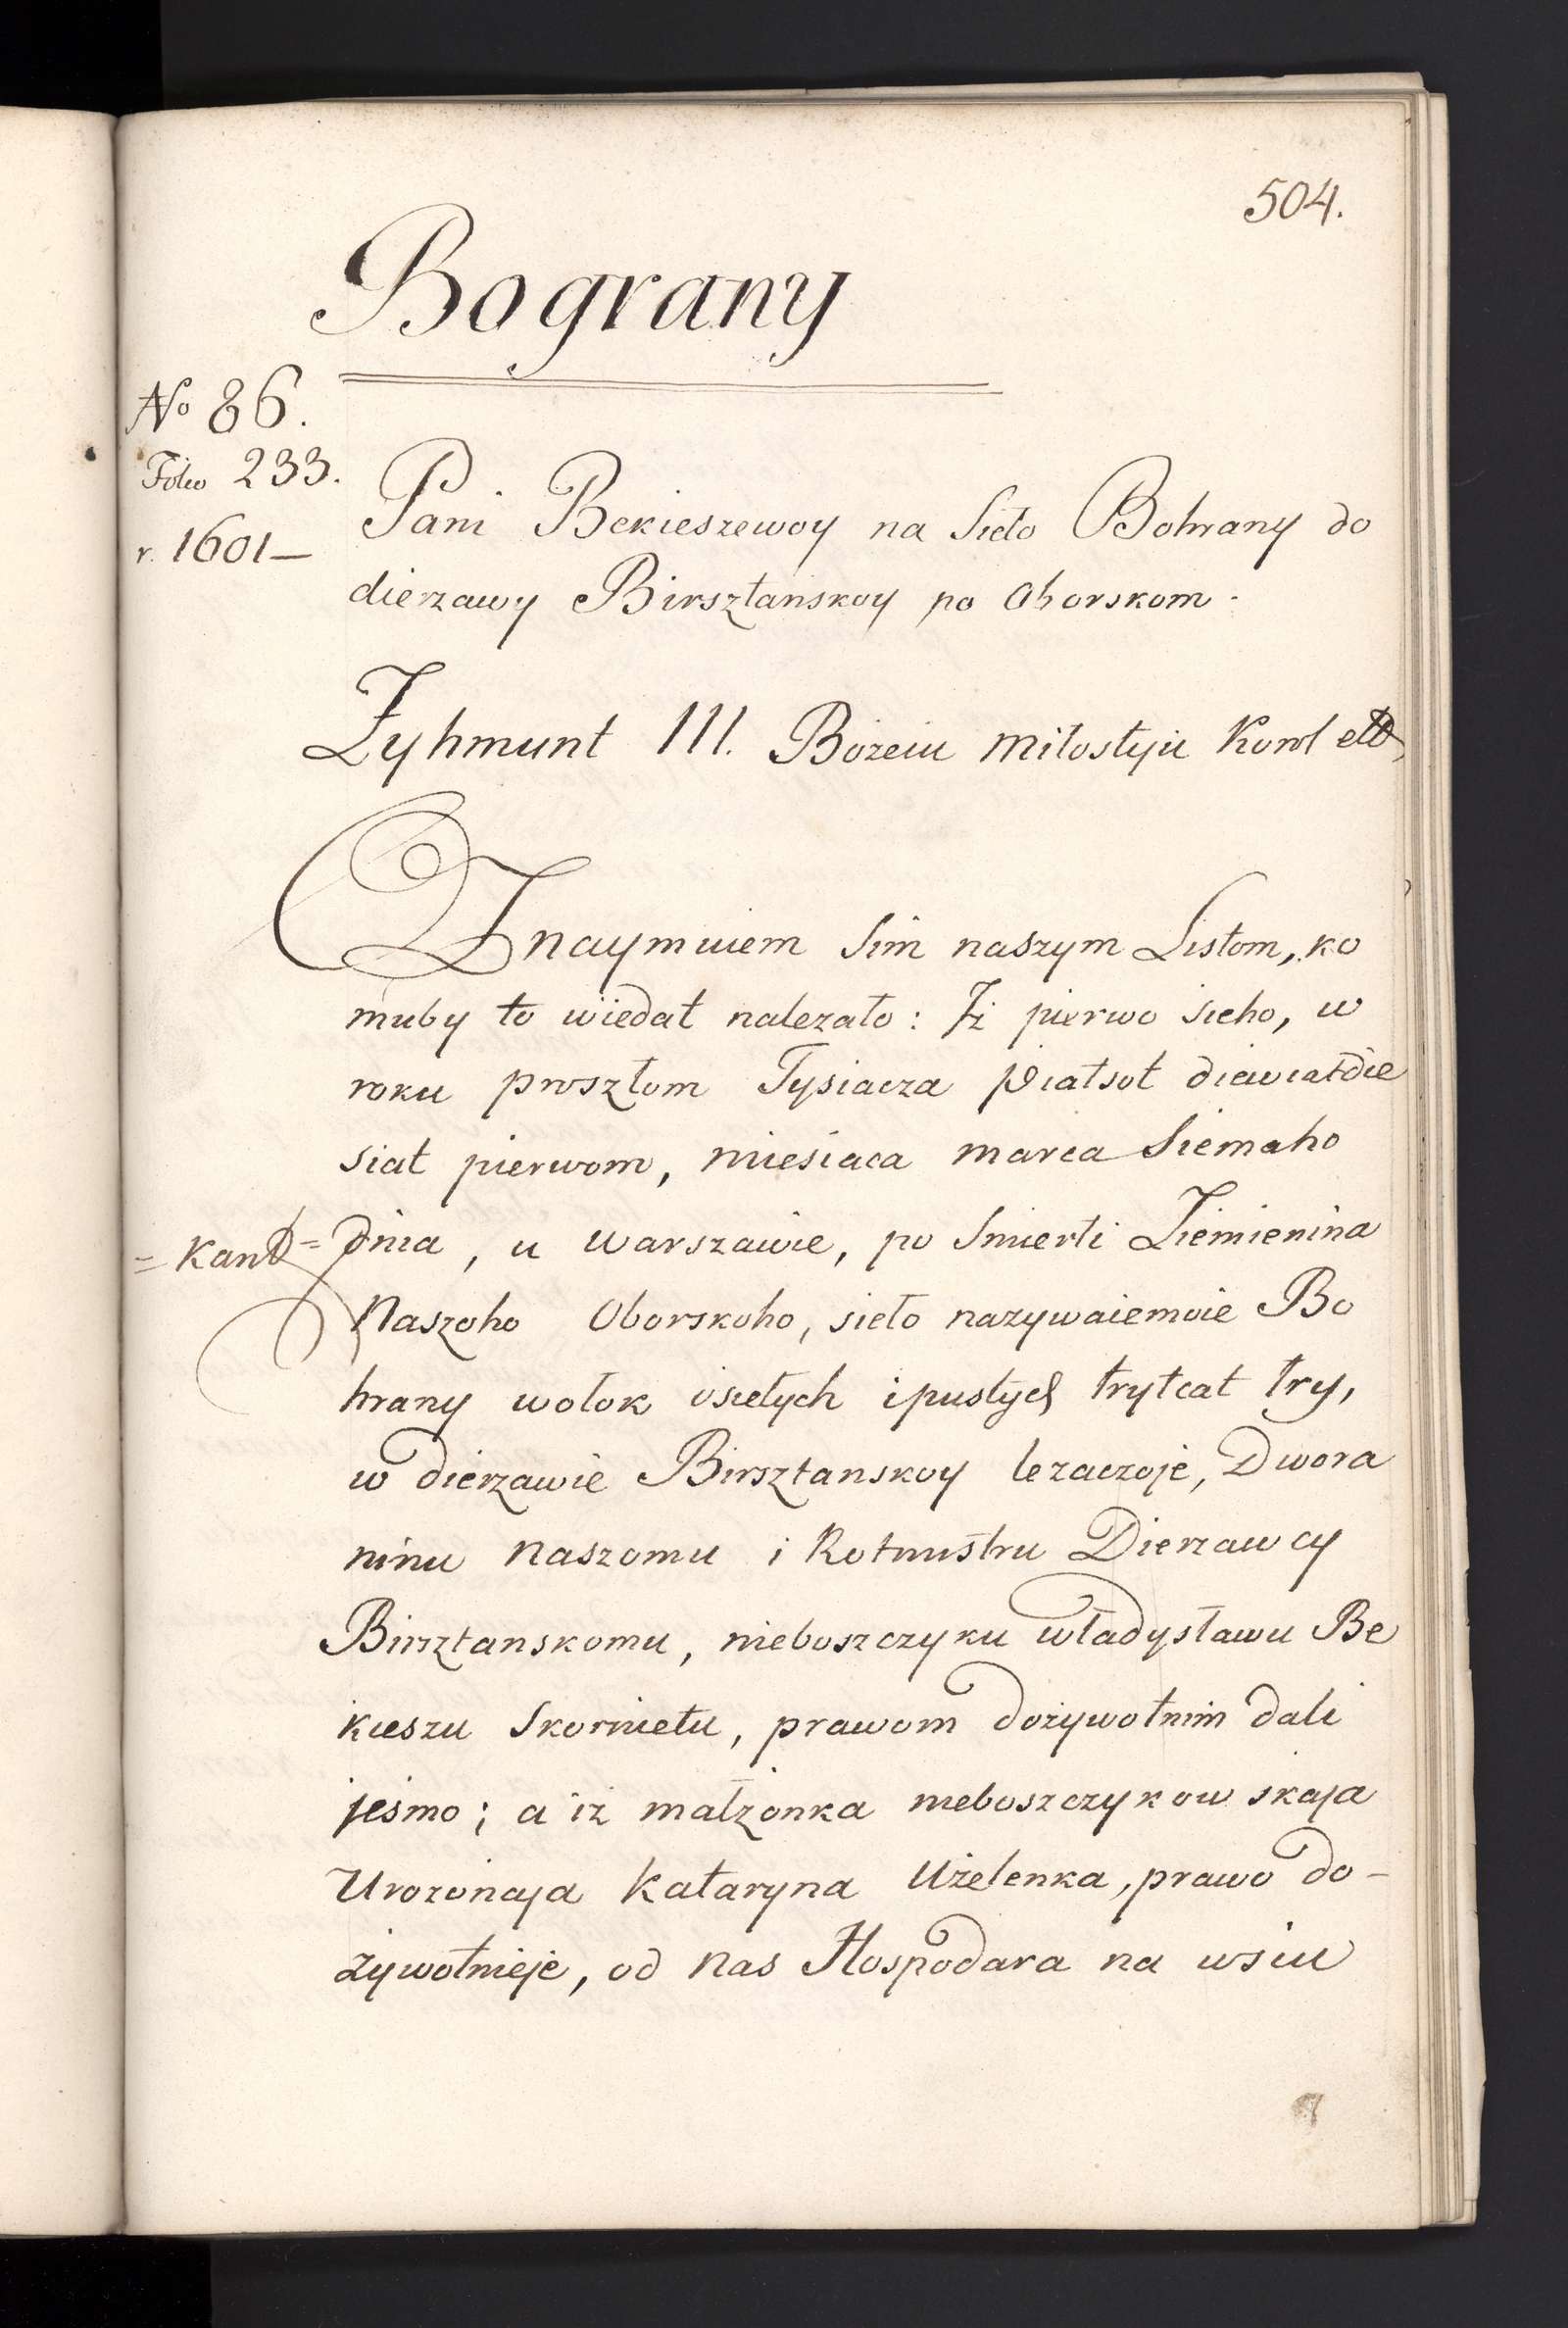 504.
Bograny
No 86.
Folio 233.
r. 1601—
Pani Bekieszewoy na Sieło Bohrany do
dierzawy Birsztanskoy po Oborskom.
Zyhmunt III. Bożeiu miłostyiu Korol etc
Znaymuiem sim naszym Listom, ko
muby to wiedat nalezało: Iż pierwo sieho, w
roku proszłom Tysiacza piatsot diewiatdie
siat pierwom, miesiaca marca Siemaho
= Kand = dnia, u Warszawie, po Smierti Ziemienina
Naszoho Oborskoho, sieło nazywaiemoie Bo
hrany wołok osiełych i pustych trytcat try,
w dierzawie Birsztanskoy lezaczoje, Dwora
ninu naszomu i Rotmistru Dierzawcy
Birsztanskomu, nieboszczyku Władysławu Be
kieszu Skornietu, prawom dożywotnim dali
jeśmo; a iż małżonka nieboszczykowskaja
Urozonaja Kataryna Użelenka, prawo do-
żywotnieje, od nas Hospodara na wsiu